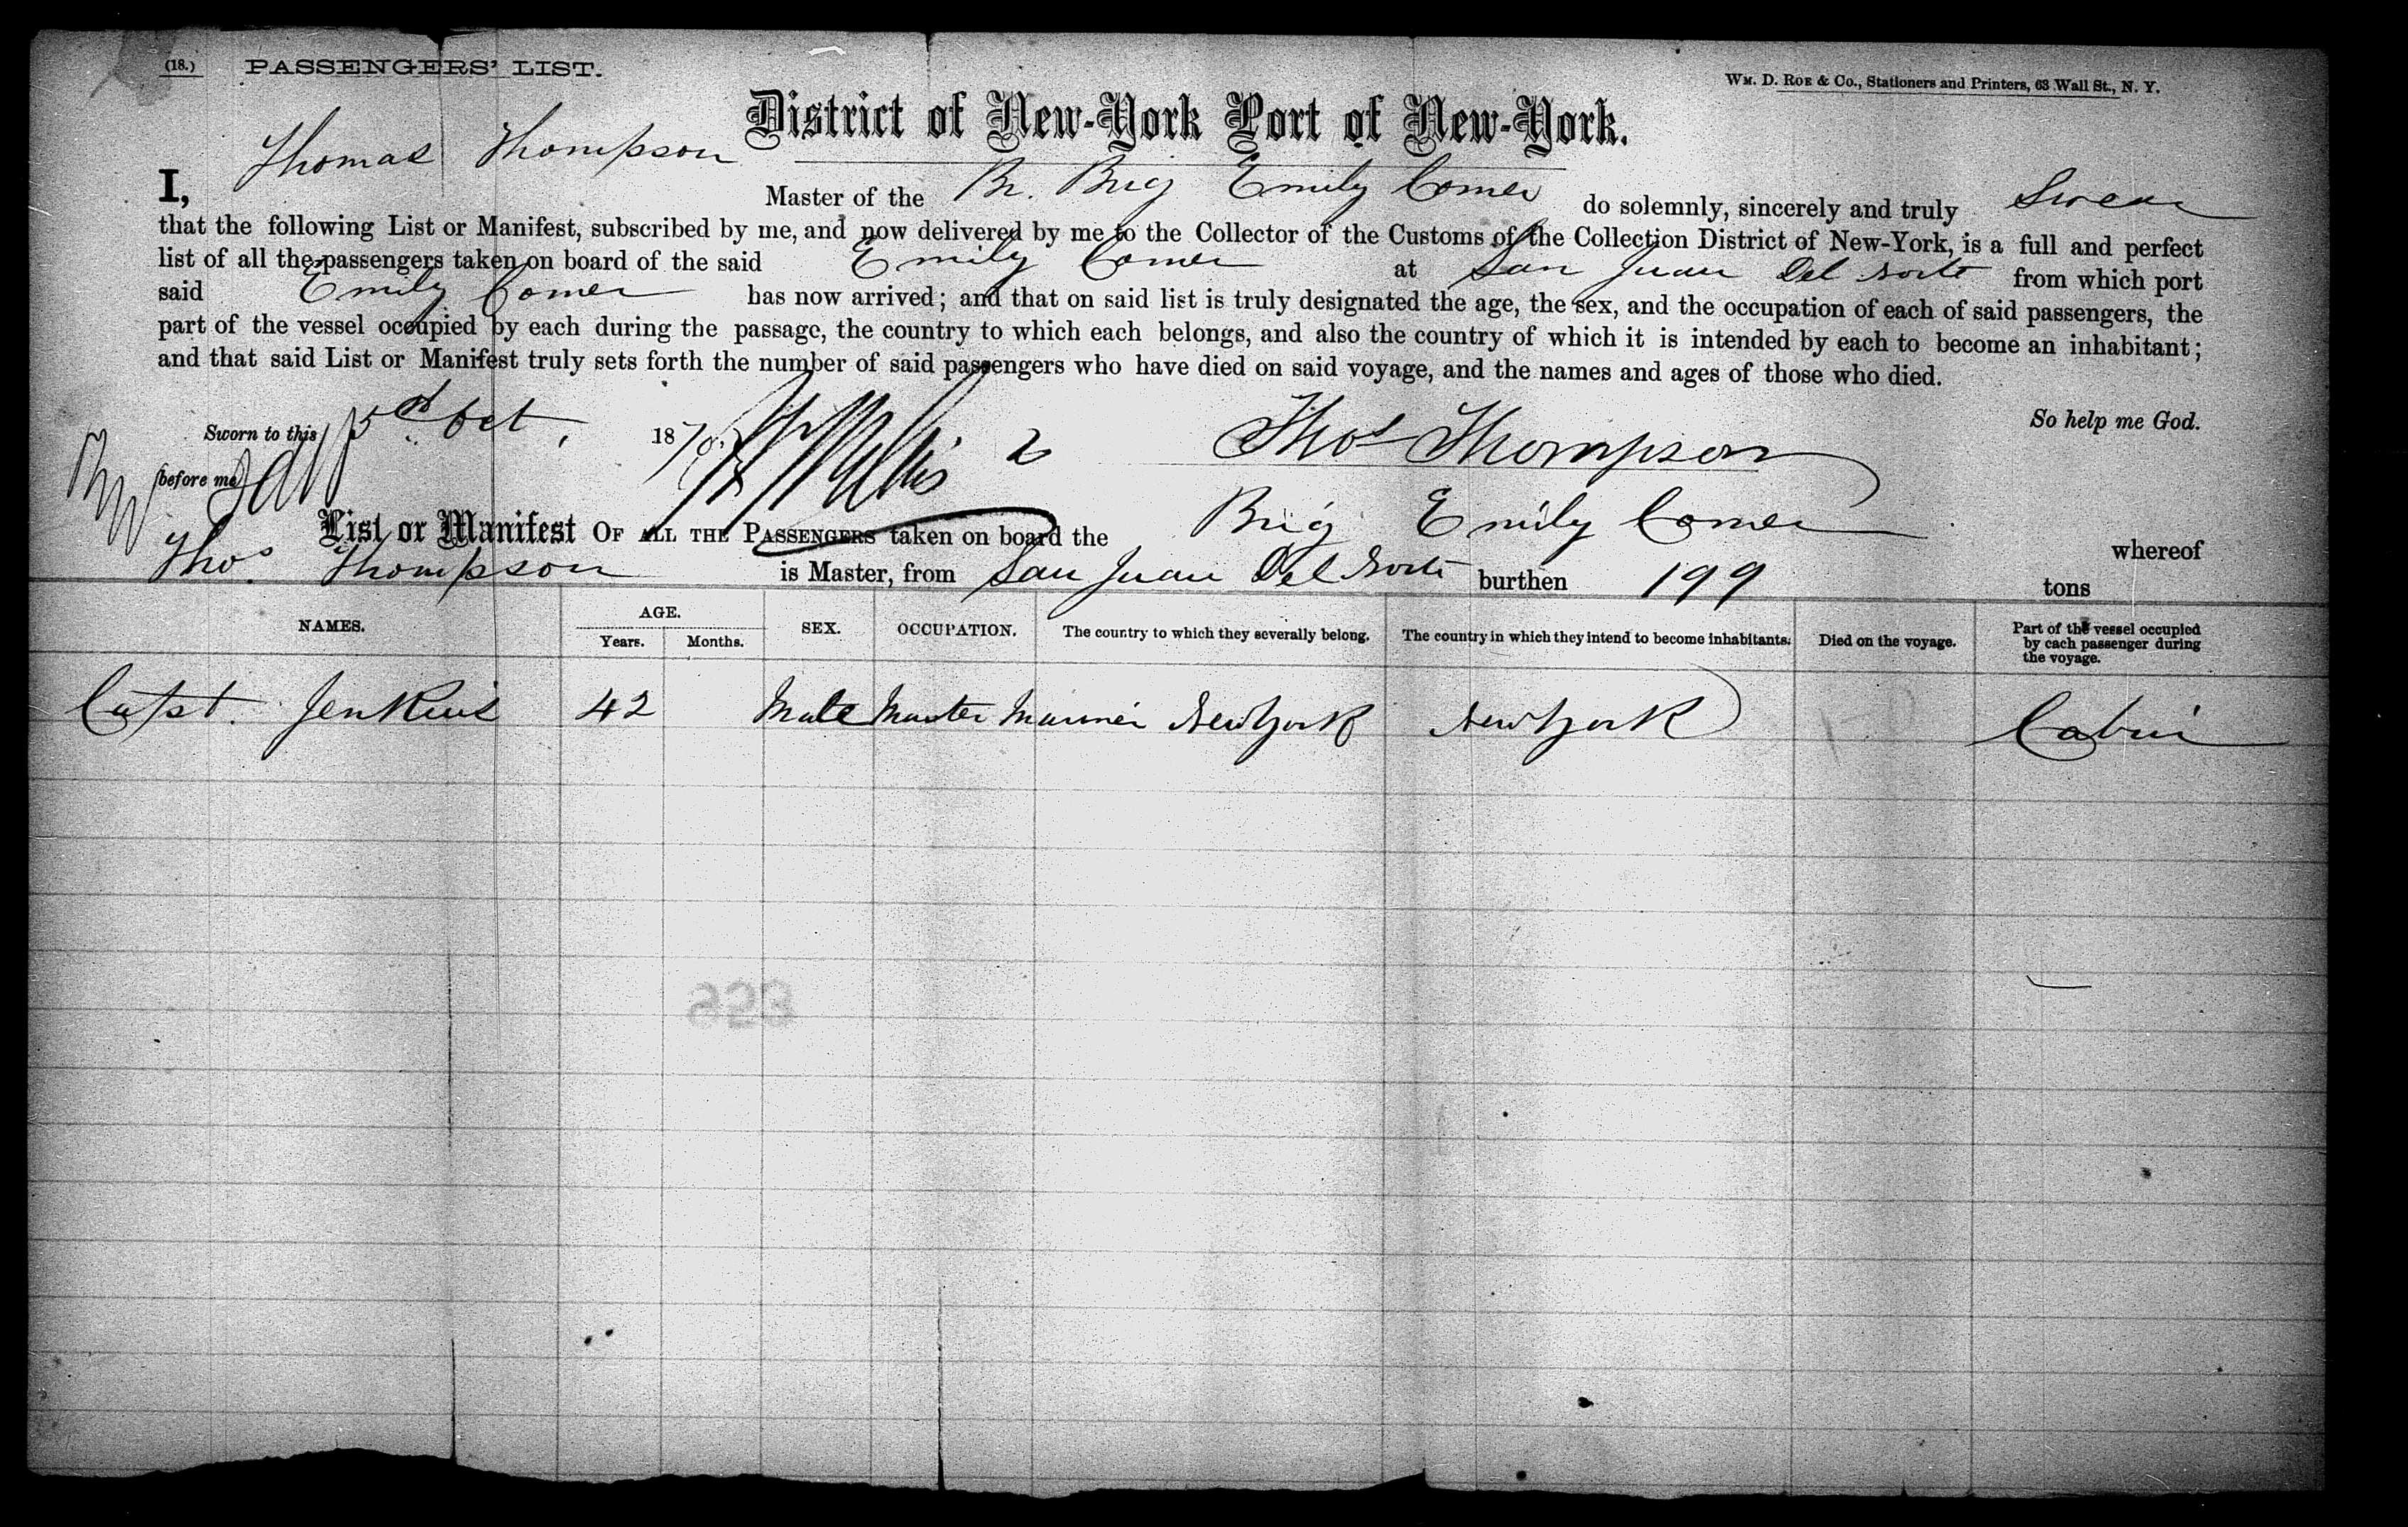 (18.) PASSENGERS' LIST.
WM. D. ROE & Co., Stationers and Printers, 63 Wall St., N. Y.
District of New-York Port of New-York.
I, Thomas Thompson Master of the Br. Brig Emily Comer do solemnly, sincerely and truly Swear
that the following List or Manifest, subscribed by me, and now delivered by me to the Collector of the Customs of the Collection District of New-York, is a full and perfect
list of all the passengers taken on board of the said Emily Comer at San Juan Del Norte from which port
said Emily Comer has now arrived; and that on said list is truly designated the age, the sex, and the occupation of each of said passengers, the
part of the vessel occupied by each during the passage, the country to which each belongs, and also the country of which it is intended by each to become an inhabitant;
and that said List or Manifest truly sets forth the number of said passengers who have died on said voyage, and the names and ages of those who died.
So help me God.
Sworn to this Oct. 18 Thos Thompson
before me
List or Manifest OF ALL THE PASSENGERS taken on board the Brig Emily Comer whereof
Thos. Thompson is Master, from San Juan Del Norte burthen 199 tons
NAMES. AGE. Years. Months. SEX. OCCUPATION. The country to which they severally belong. The country in which they intend to become inhabitants. Died on the voyage. Part of the vessel occupied by each passenger during the voyage.
Capt. Jenkins 42 Male Master Mariner New York New York Cabin